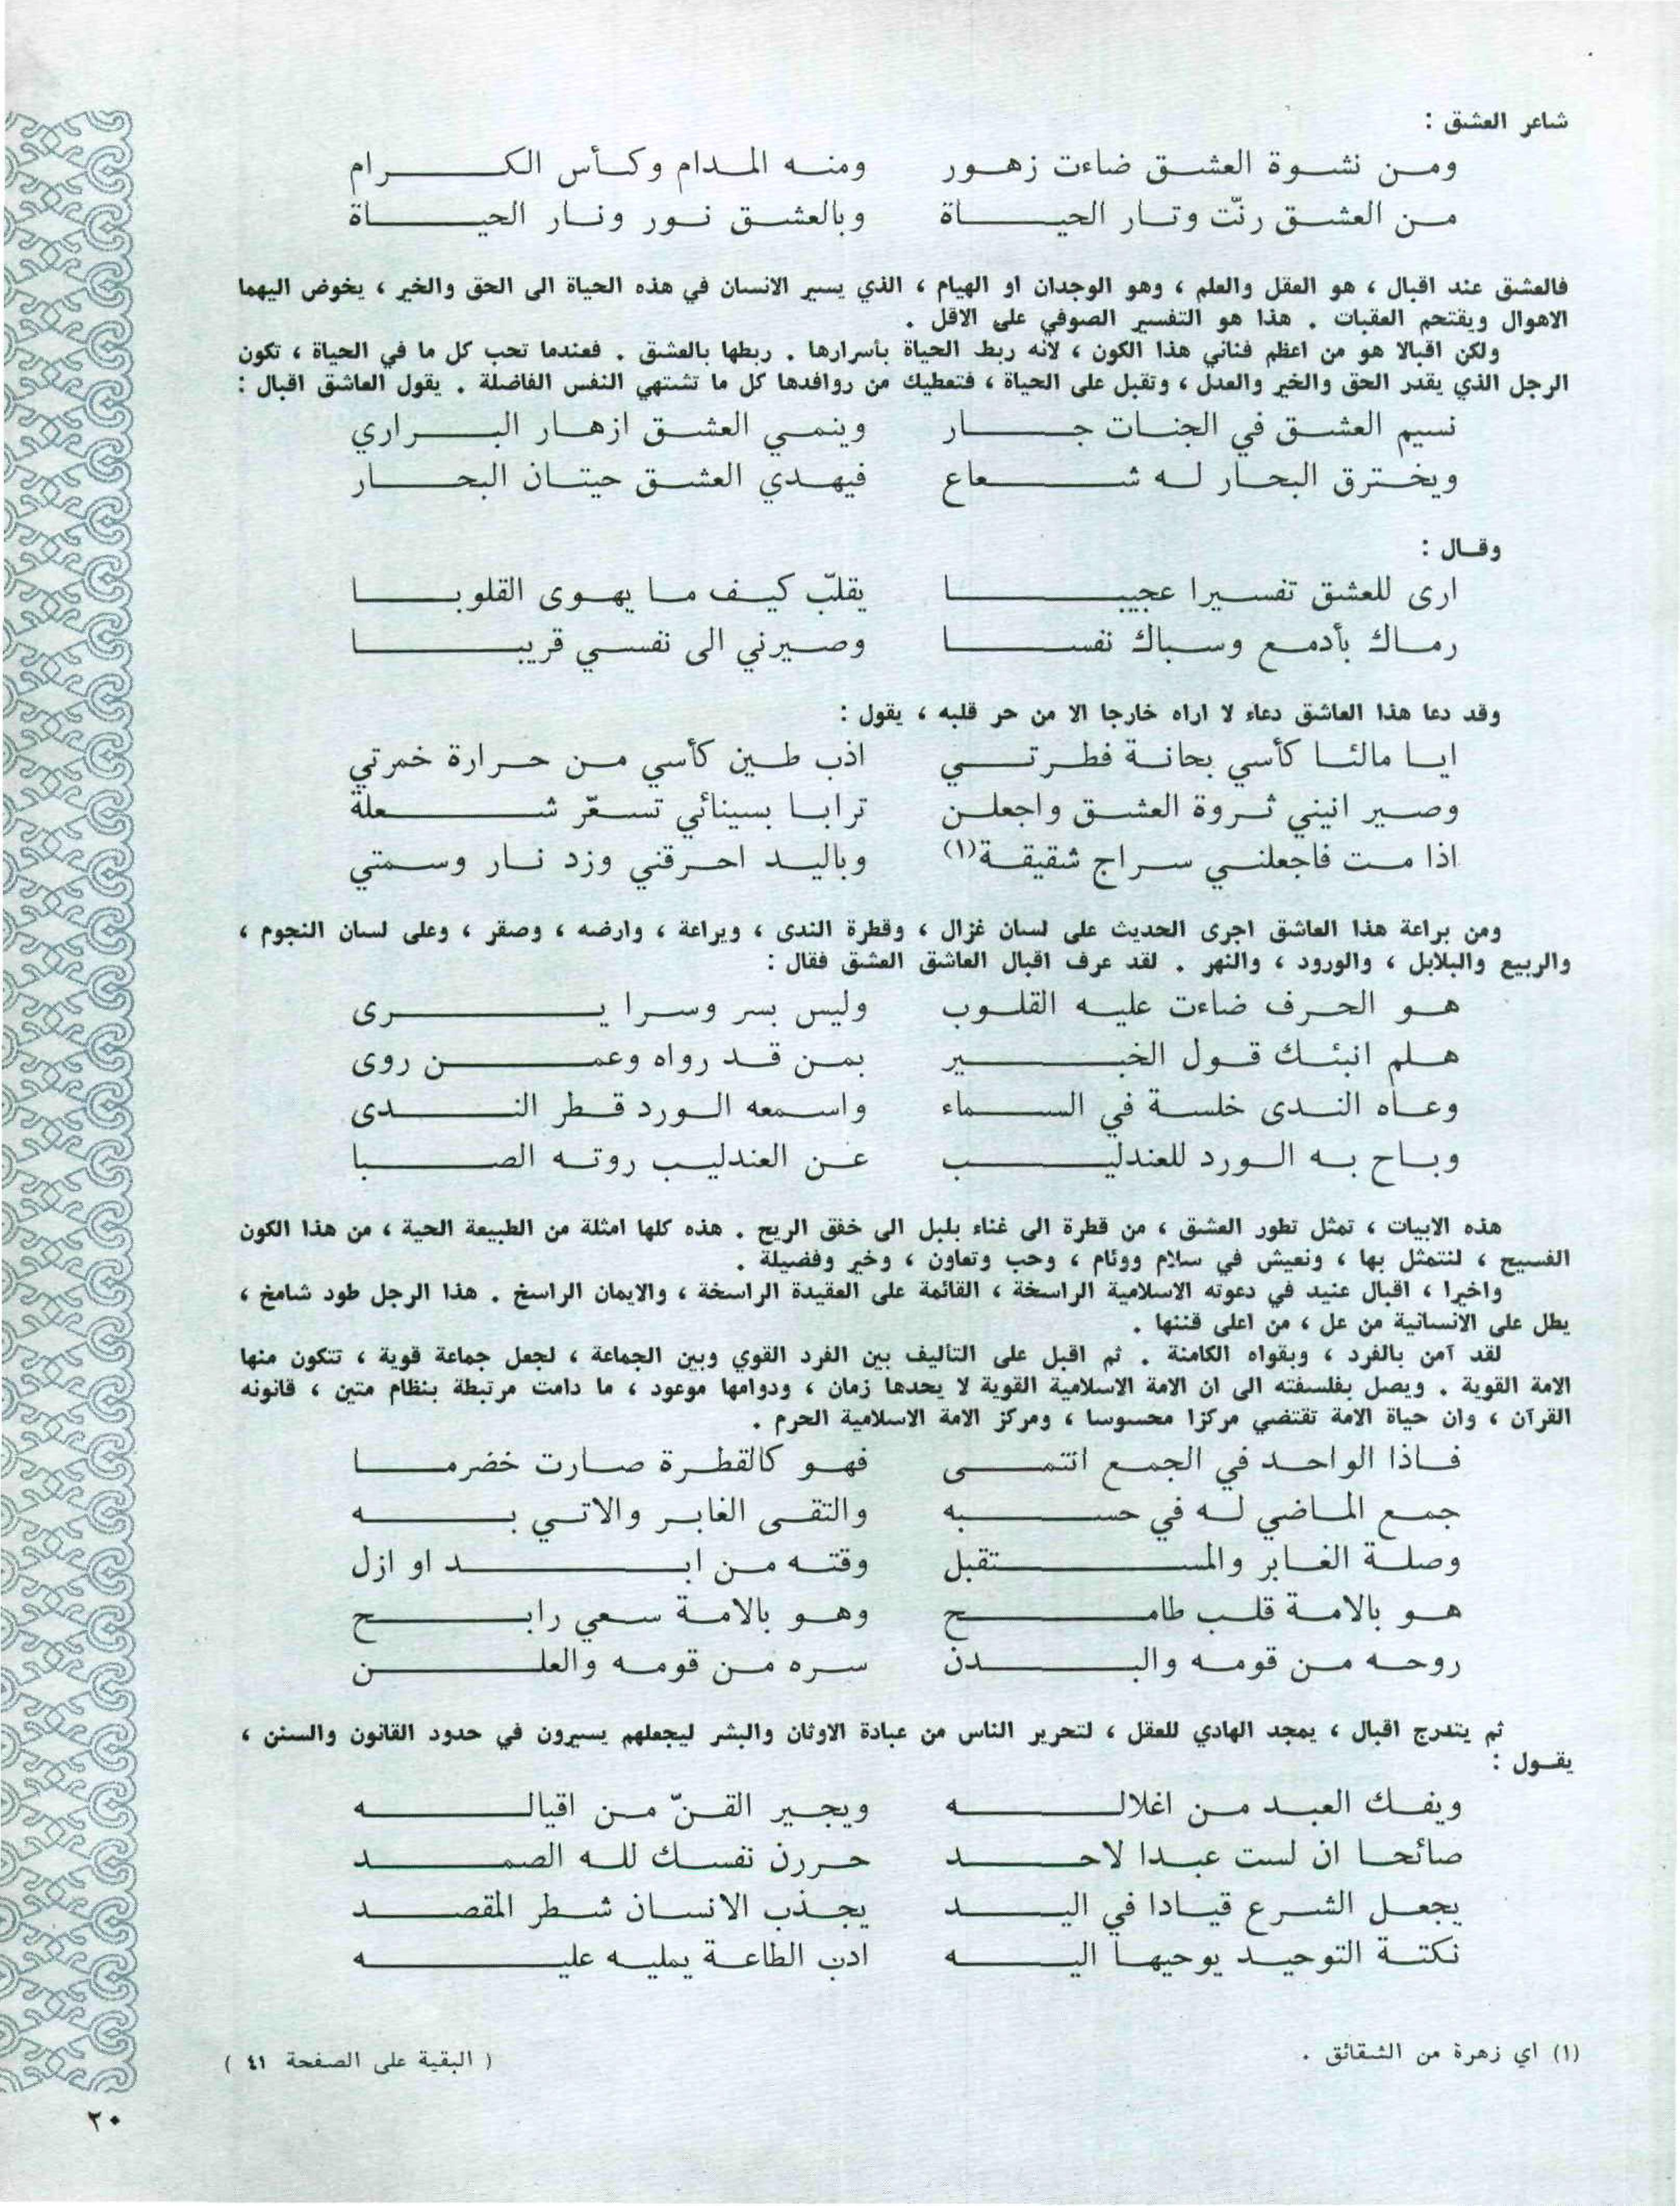 شاعر العشق :
ومن نشوة العشق ضاءت زهور ومنه المدام وكأس الكرام
من العشق رنّت وتار الحياة وبالعشق نور ونار الحياة
فالعشق عند اقبال ، هو العقل والعلم ، وهو الوجدان او الهيام ، الذي يسير الانسان في هذه الحياة الى الحق والخير ، يخوض اليهما
الاهوال ويقتحم العقبات . هذا هو التفسير الصوفي على الاقل .
ولكن اقبالا هو من اعظم فناني هذا الكون ، لأنه ربط الحياة بأسرارها . ربطها بالعشق . فعندما تحب كل ما في الحياة ، تكون
الرجل الذي يقدر الحق والخير والعدل ، وتقبل على الحياة ، فتعطيك من روافدها كل ما تشتهي النفس الفاضلة . يقول العاشق اقبال :
نسيم العشق في الجنات جار وينمي العشق ازهار البراري
ويخترق البحار له شعاع فيهدي العشق حيتان البحار
وقال :
ارى للعشق تفسيرا عجيبا يقلّب كيف ما يهوى القلوبا
رماك بأدمع وسباك نفسا وصيرني الى نفسي قريبا
وقد دعا هذا العاشق دعاء لا اراه خارجا الا من حر قلبه ، يقول :
ايا مالئا كأسي بحانة فطرتي اذب طين كأسي من حرارة خمرتي
وصير انيني ثروة العشق واجعلن ترابا بسينائي تسعّر شعلة
اذا مت فاجعلني سراج شقيقة(١) وباليد احرقني وزد نار وسمتي
ومن براعة هذا العاشق اجرى الحديث على لسان غزال ، وقطرة الندى ، ويراعة ، وارضه ، وصقر ، وعلى لسان النجوم ،
والربيع والبلابل ، والورود ، والنهر . لقد عرف اقبال العاشق العشق فقال :
هو الحرف ضاءت عليه القلوب وليس بسر وسرا يرى
هلم انبئك قول الخبير بمن قد رواه وعمن روى
وعاه الندى خلسة في السماء واسمعه الورد قطر الندى
وباح به الورد للعندليب عن العندليب روته الصبا
هذه الابيات ، تمثل تطور العشق ، من قطرة الى غناء بلبل الى خفق الريح . هذه كلها امثلة من الطبيعة الحية ، من هذا الكون
الفسيح ، لنتمثل بها ، ونعيش في سلام ووئام ، وحب وتعاون ، وخير وفضيلة .
واخيرا ، اقبال عنيد في دعوته الاسلامية الراسخة ، القائمة على العقيدة الراسخة ، والايمان الراسخ . هذا الرجل طود شامخ ،
يطل على الانسانية من عل ، من اعلى قننها .
لقد آمن بالفرد ، وبقواه الكامنة . ثم اقبل على التأليف بين الفرد القوي وبين الجماعة ، لجعل جماعة قوية ، تتكون منها
الامة القوية . ويصل بفلسفته الى ان الامة الاسلامية القوية لا يحدها زمان ، ودوامها موعود ، ما دامت مرتبطة بنظام متين ، قانونه
القرآن ، وان حياة الامة تقتضي مركزا محسوسا ، ومركز الامة الاسلامية الحرم .
فاذا الواحد في الجمع انتمى فهو كالقطرة صارت خضرما
جمع الماضي له في حسبه والتقى الغابر والاتي به
وصلة الغابر والمستقبل وقته من ابد او ازل
هو بالامة قلب طامح وهو بالامة سعي رابح
روحه من قومه والبدن سره من قومه والعلن
ثم يتدرج اقبال ، يمجد الهادي للعقل ، لتحرير الناس من عبادة الاوثان والبشر ليجعلهم يسيرون في حدود القانون والسنن ،
يقول :
ويفك العبد من اغلاله ويجير القنّ من اقياله
صائحا ان لست عبدا لاحد حررن نفسك لله الصمد
يجعل الشرع قيادا في اليد يجذب الانسان شطر المقصد
نكتة التوحيد يوحيها اليه ادب الطاعة يمليه عليه
(١) اي زهرة من الشقائق .
( البقية على الصفحة ٤١ )
٢٠